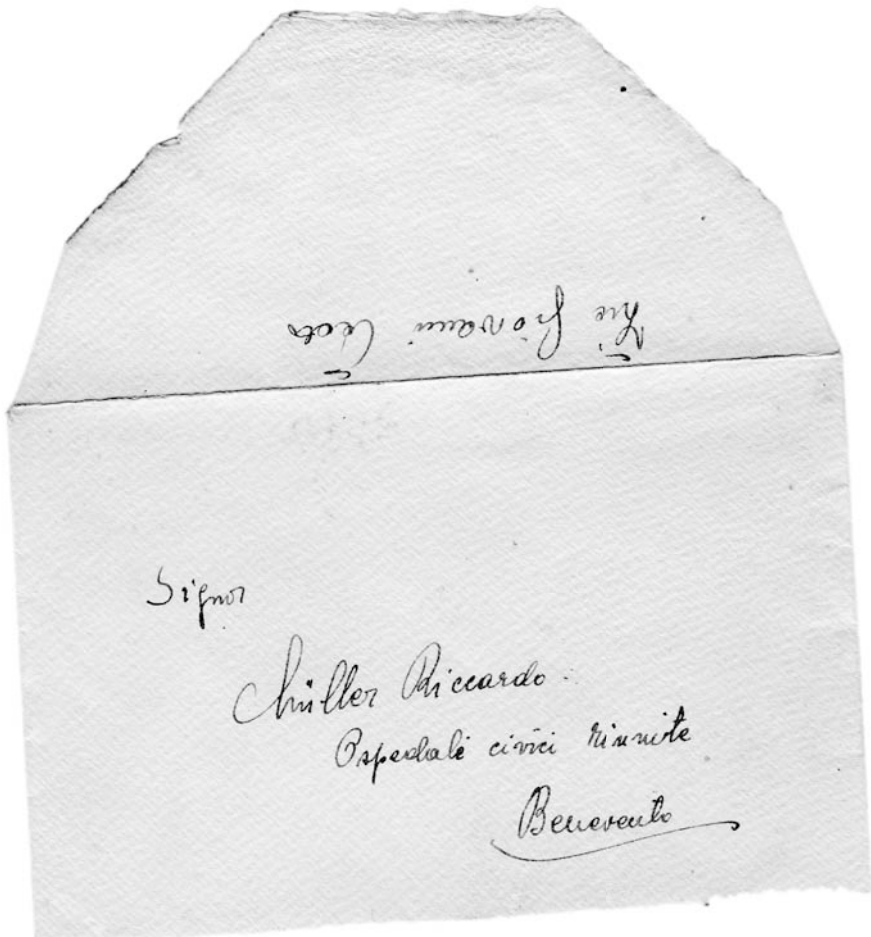 Zio Giovanni
Signor
Müller Riccardo
Ospedali civici riunite
Benevento